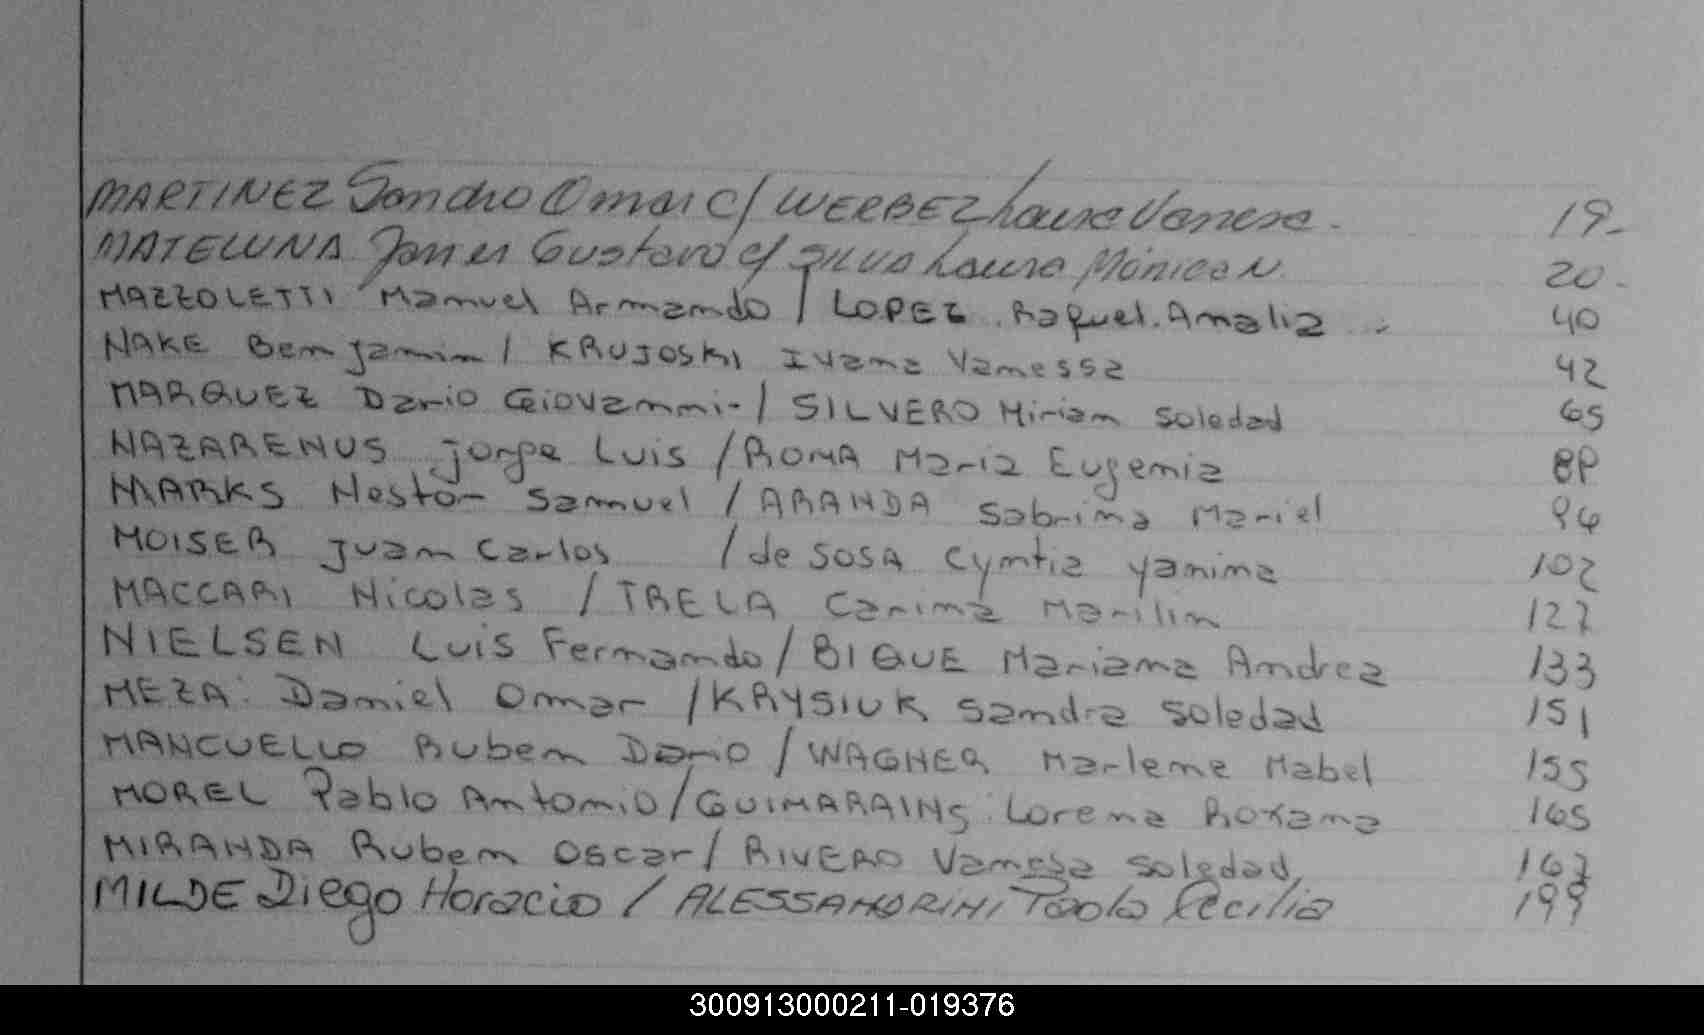 MARTINEZ Sandro Omar c/ WERBEZ Laura Vanesa - 19-
MATELUNA Gustavo c/ SILVA Laura Mónica N. 20-
MAZZOLETTI Manuel Armando / LOPEZ Raquel Amalia 40
NAKE Benjamin / KRUJOSKI Ivana Vanessa 42
MARQUEZ Dario Giovanni - / SILVERO Miriam Soledad 65
NAZARENUS Jorge Luis / ROMA Maria Eugenia 89
MARKS Nestor Samuel / ARANDA Sabrina Mariel 94
MOISER Juan Carlos / de SOSA Cyntia Yanina 102
MACCARI Nicolas / TRELA Carina Marilin 127
NIELSEN Luis Fernando / BIQUE Mariana Andrea 133
MEZA Daniel Omar / KRYSIUK Sandra Soledad 151
MANCUELLO Ruben Dario / WAGNER Marlene Mabel 155
MOREL Pablo Antonio / GUIMARAINS Lorena Roxana 165
MIRANDA Ruben Oscar / RIVERO Vanesa Soledad 167
MILDE Diego Horacio / ALESSANDRINI Paola Cecilia 199
300913000211-019376